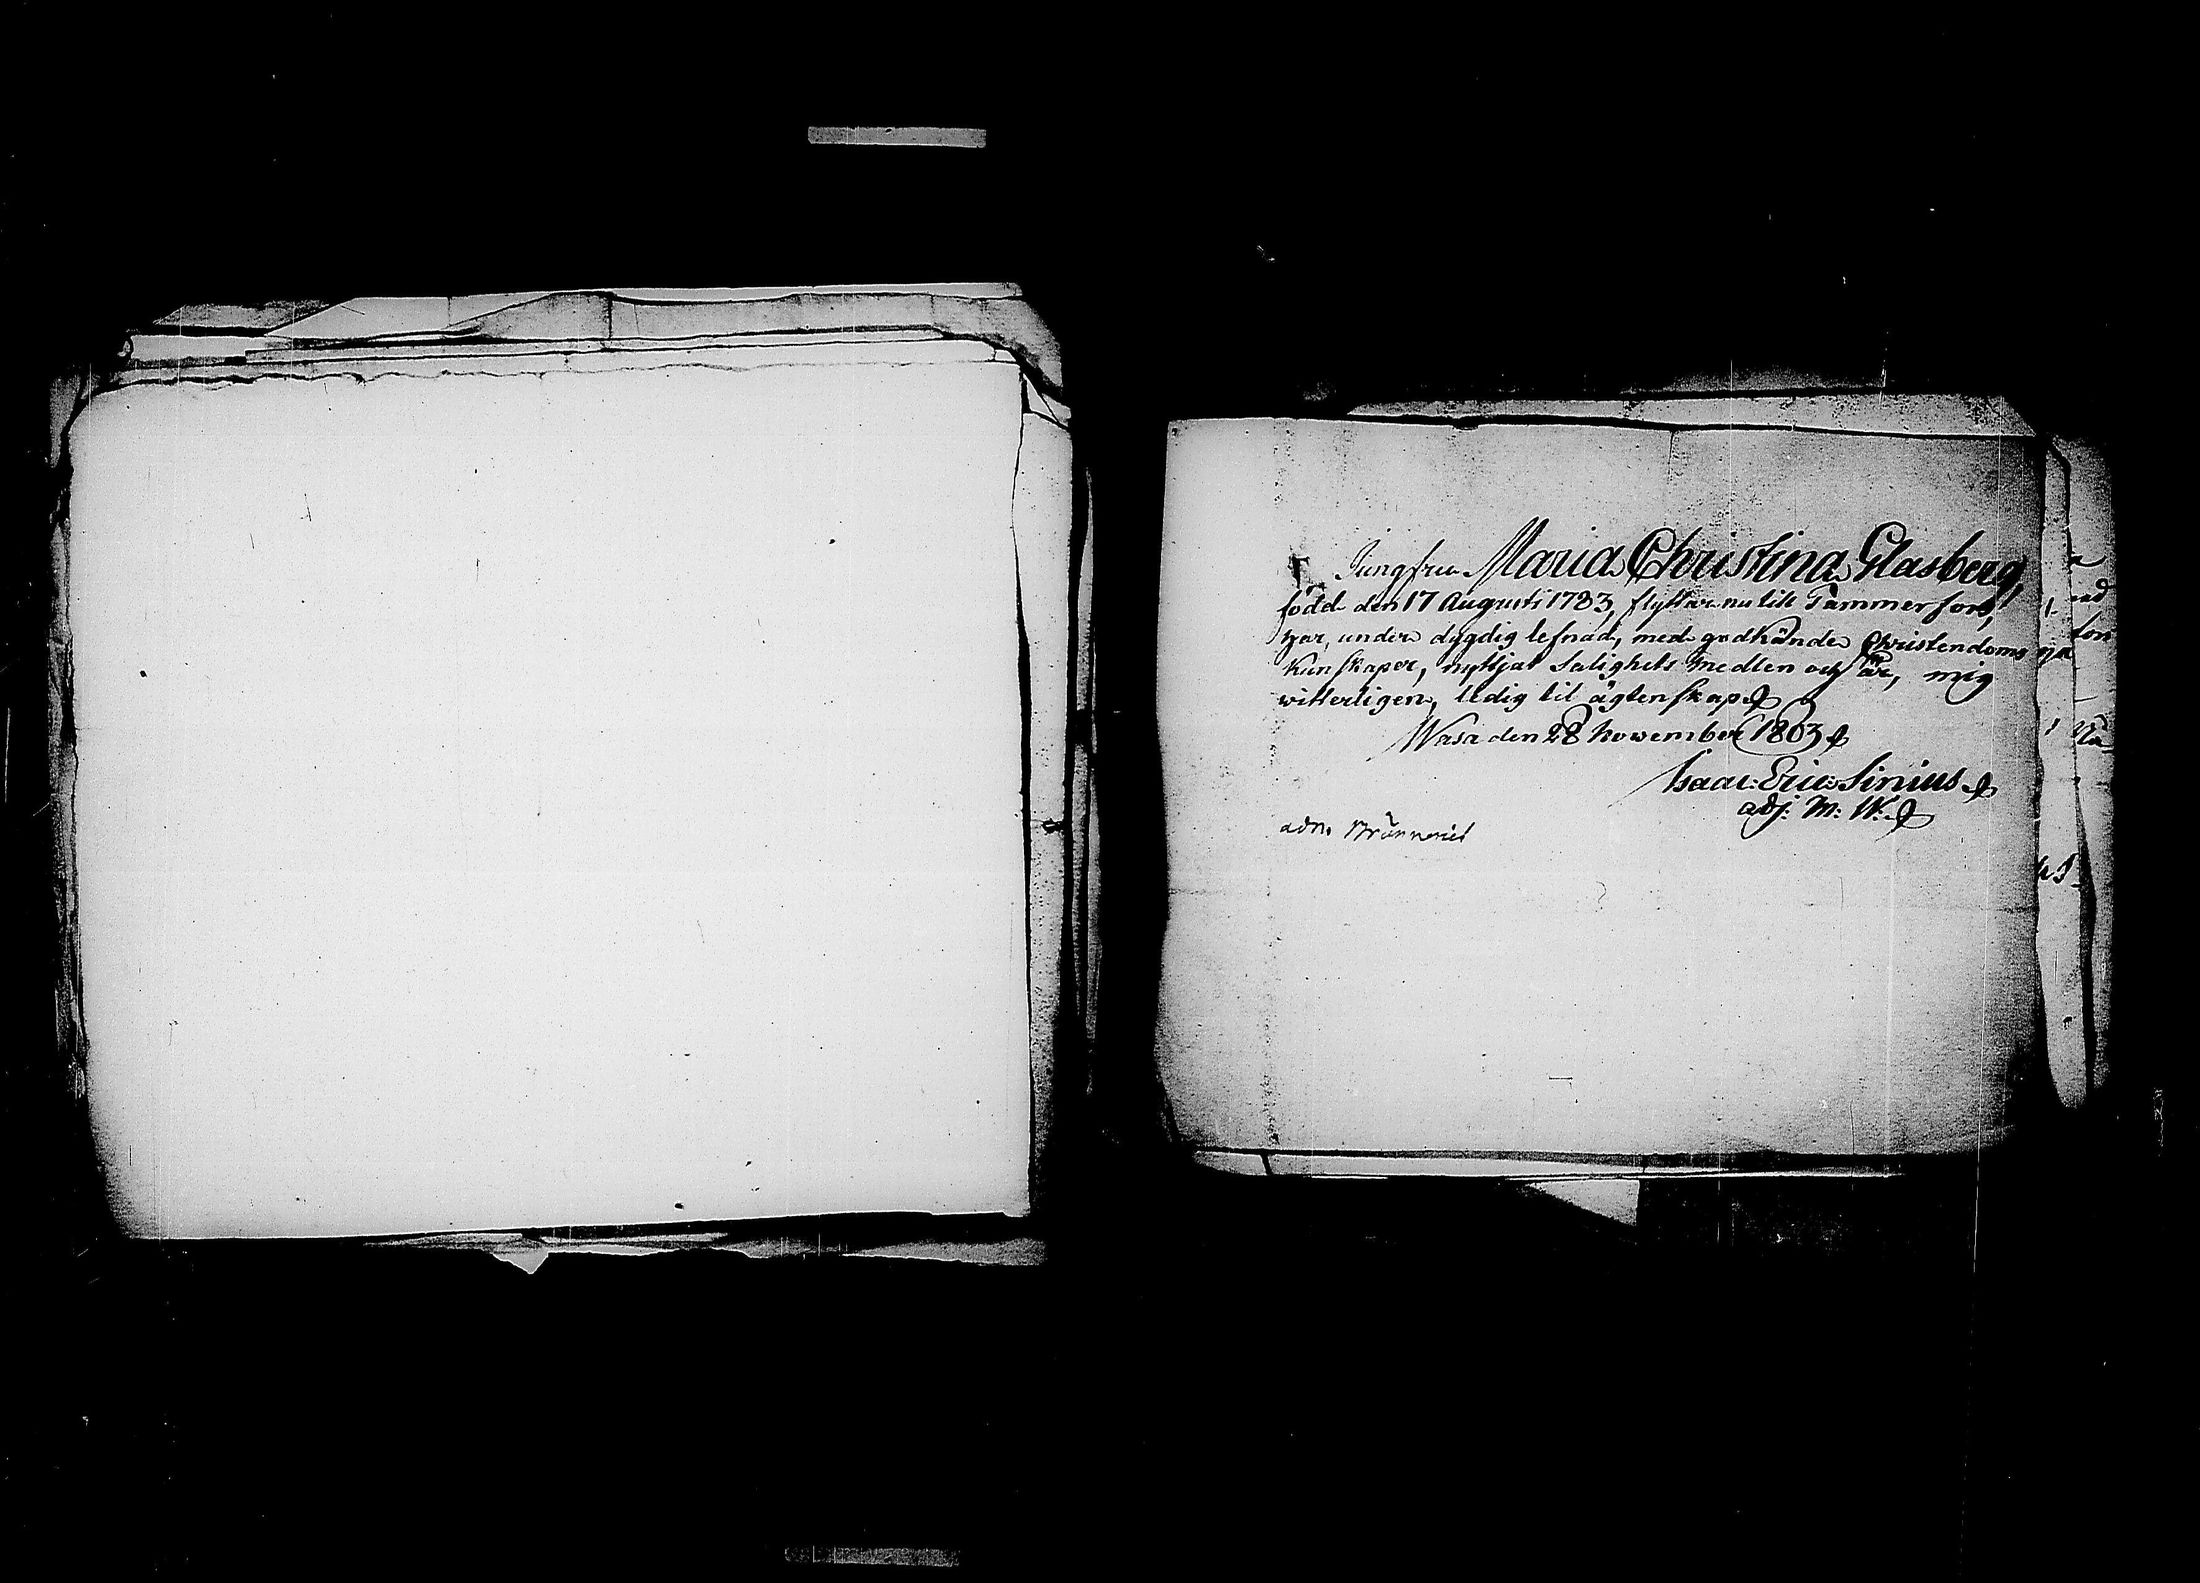 Jungfru Maria Christina Glasberg,
född den 17 Augusti 1783, flyttar nu till Tammerfors,
har, under dygdig lefnad, med godkände Christendoms
Kunskaper, nyttjat Salighets medlen och är, mig
witterligen, ledig til ägtenskap
Wasa den 28 November 1803
Isaac Eric Sinius
adj. M: W.